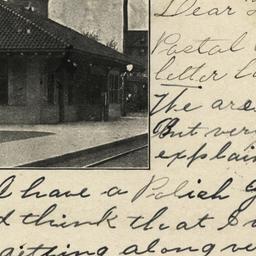 Dear
Postal
letter
The are
But very
explain
I have a Polish G
d think that I w
getting along ve